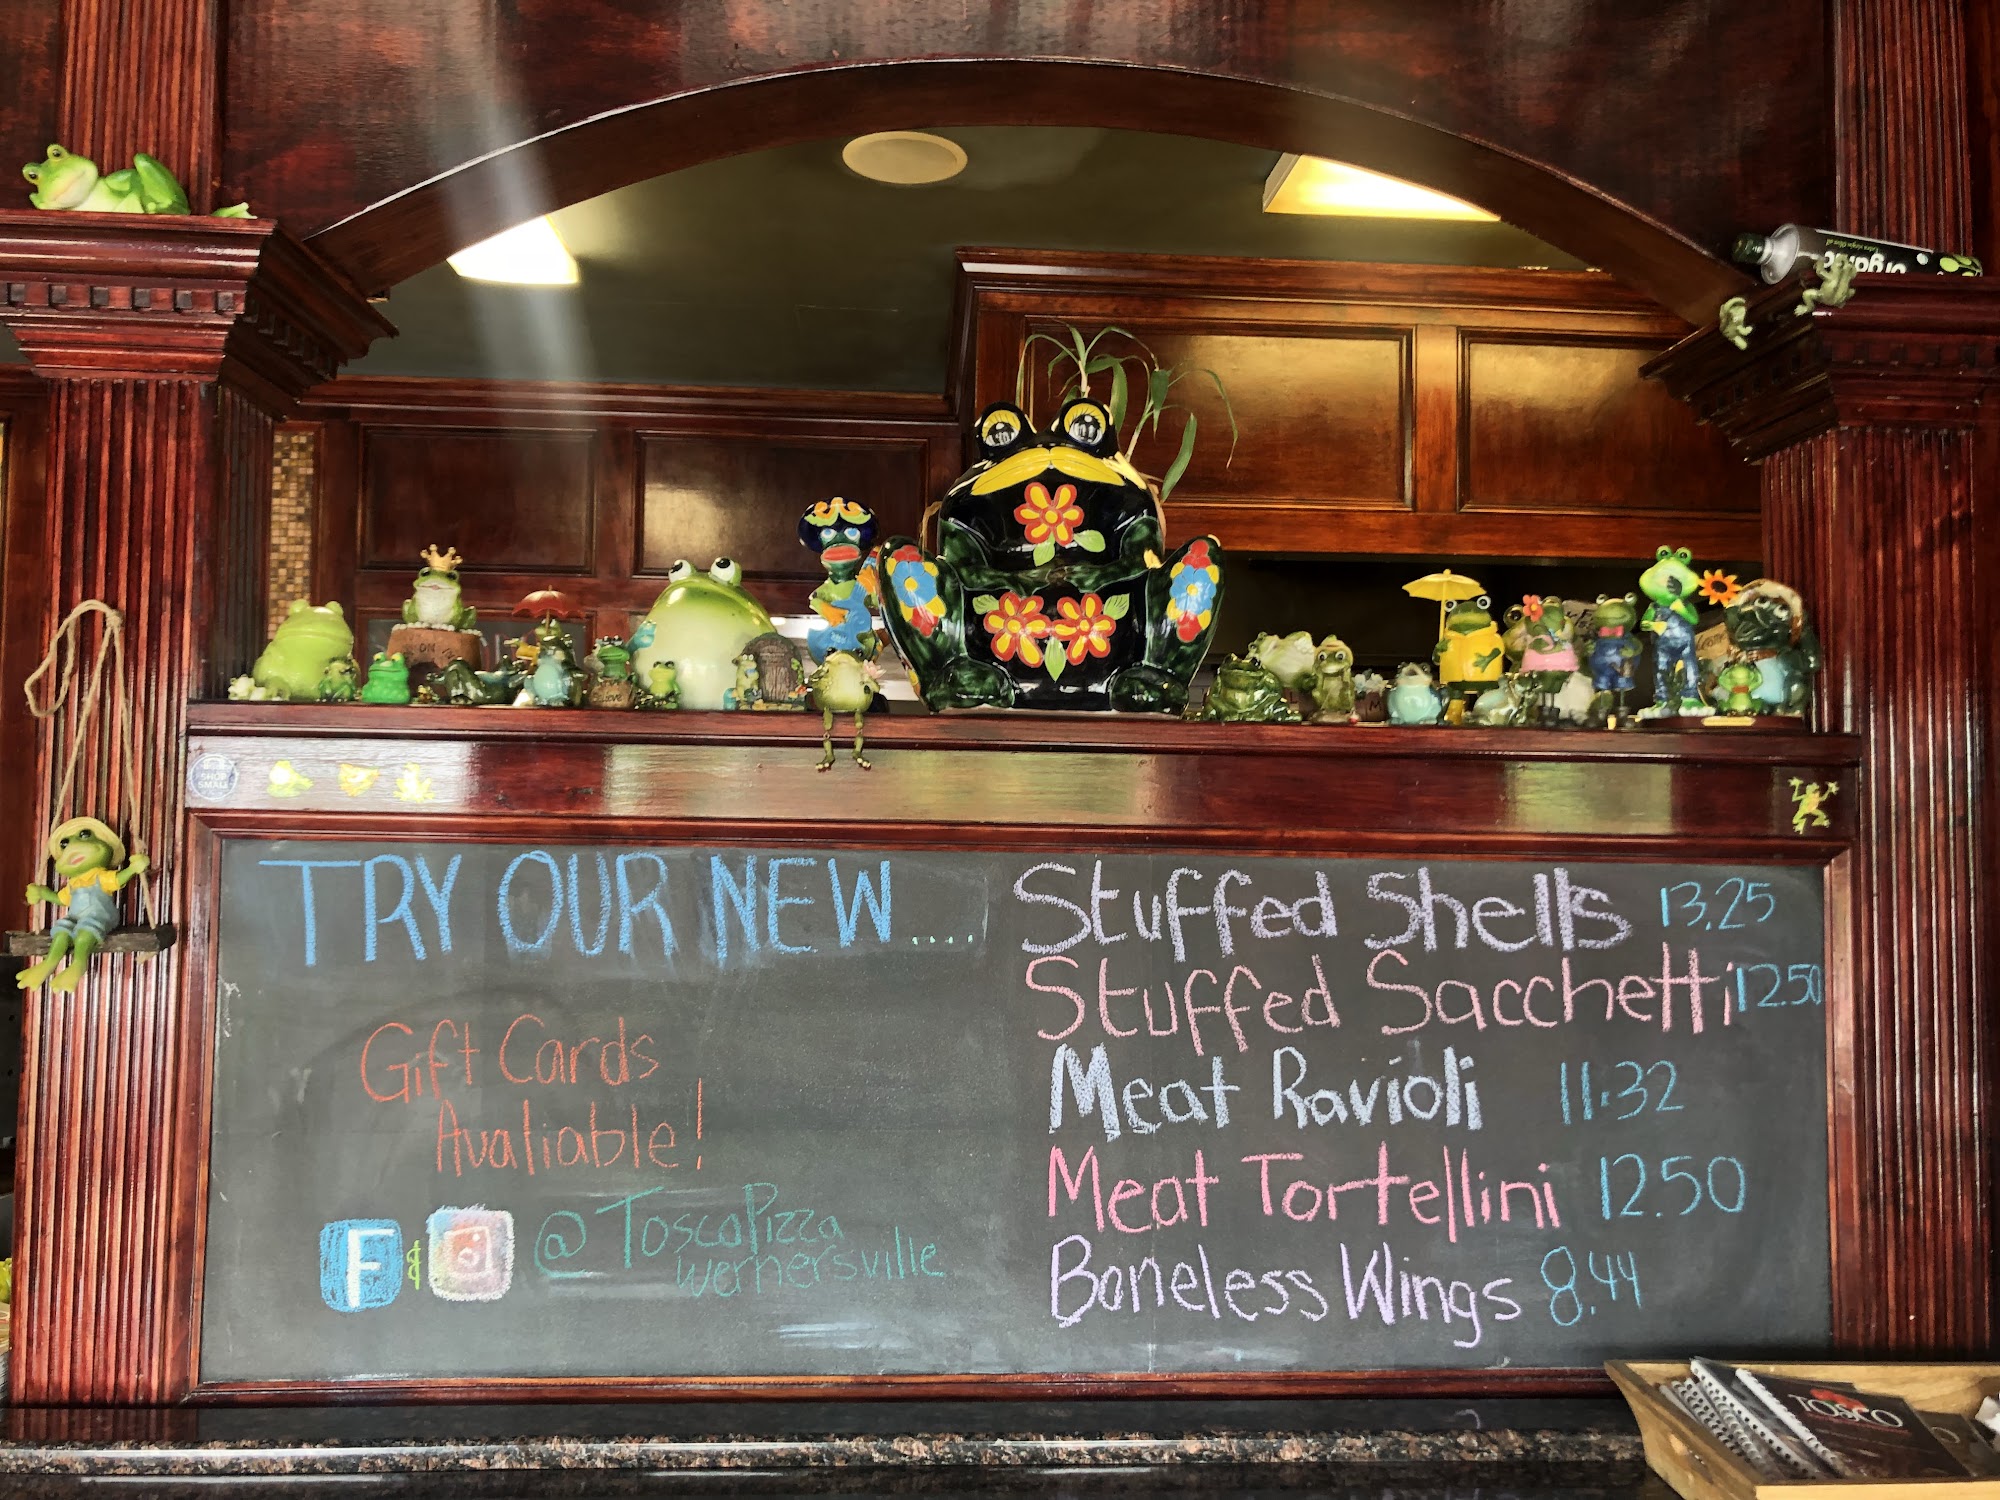 organic
Extra virgin Olive oil
SHOP
SMALL
TRY OUR NEW....
Gift Cards
Avaliable!
F & @ToscaPizza
wernersville
Stuffed Shells 13.25
Stuffed Sacchetti 12.50
Meat Ravioli 11.32
Meat Tortellini 12.50
Boneless Wings 8.44
TOSCO